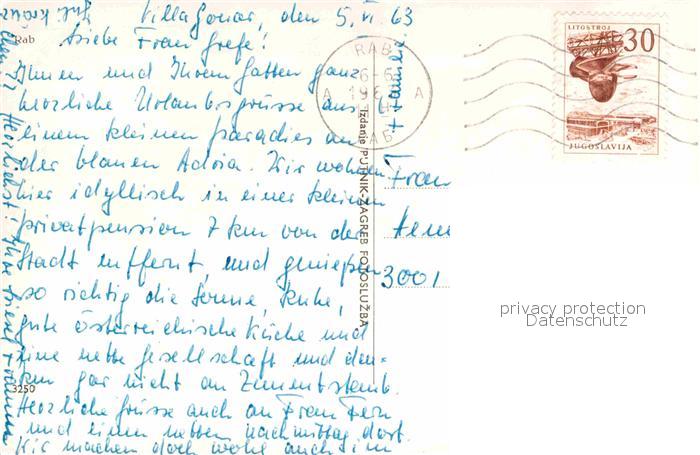 Villa Gonar, den 5. VI. 63
Rab
Liebe Frau Grefe!
Ihnen und Ihrem Gatten ganz
herzliche Urlaubsgrüsse aus
einem kleinen Paradies an
der blauen Adria. Wir wohnen
hier idyllisch in einer kleinen
Privatpension 7 km von der
Stadt entfernt, und genießen
so richtig die Sonne, Ruhe,
gute österreichische Küche und
eine nette Gesellschaft und den-
ken gar nicht an Zementstaub.
3250
Herzliche Grüsse auch an Frau Fern
und einen netten Nachmittag dort.
Wir machen doch wohl auch im
Herzlichst! Ihre
+ Familie
Frau
3001
RAB
РАБ
A A
Izdanje "PUTNIK-ZAGREB FOTOSLUŽBA
LITOSTROJ
30
JUGOSLAVIJA
privacy protection
Datenschutz